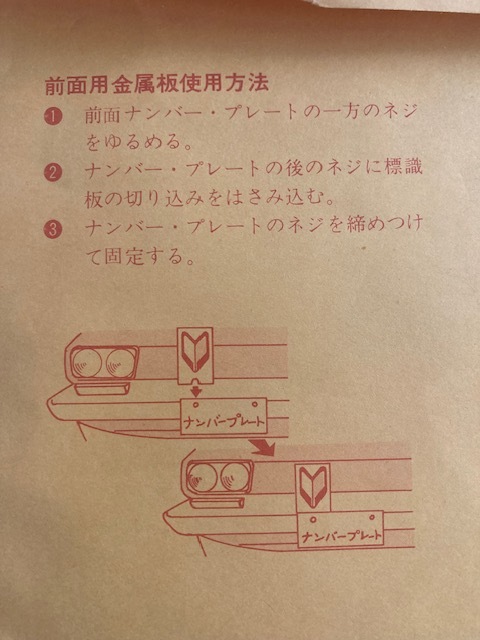 前面用金属板使用方法
❶ 前面ナンバー・プレートの一方のネジ
をゆるめる。
❷ ナンバー・プレートの後のネジに標識
板の切り込みをはさみ込む。
❸ ナンバー・プレートのネジを締めつけ
て固定する。
ナンバープレート
ナンバープレート